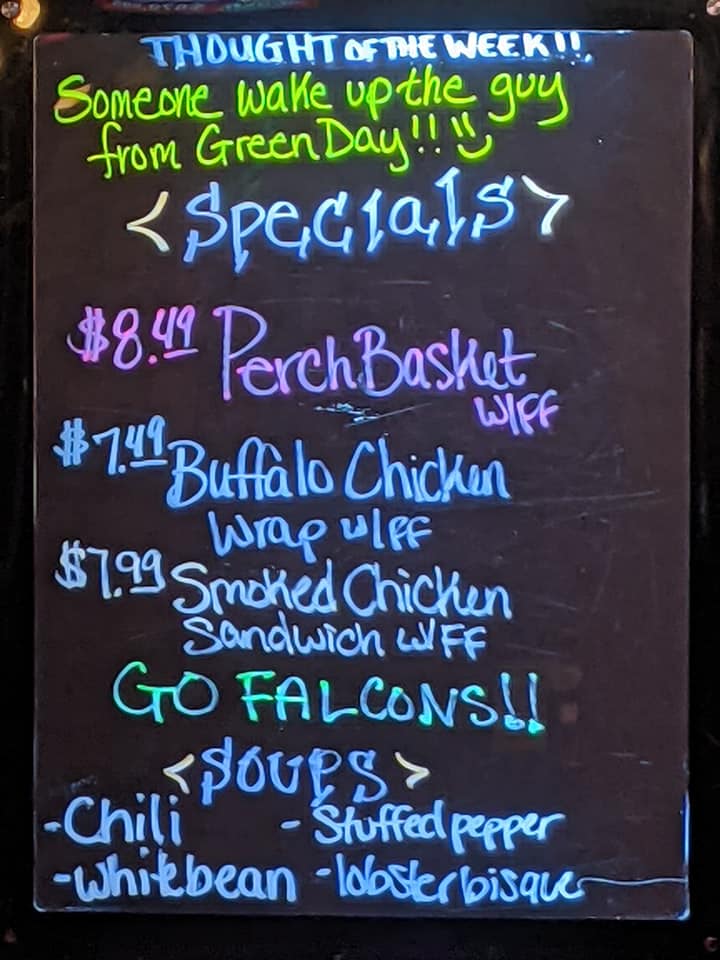 THOUGHT OF THE WEEK!!
Someone wake up the guy
from Green Day!!
<Specials>
$8.49 Perch Basket
W/FF
$7.49 Buffalo Chicken
Wrap w/FF
$7.99 Smoked Chicken
Sandwich W/FF
GO FALCONS!!
<Soups>
-Chili - Stuffed pepper
-whitebean -lobster bisque